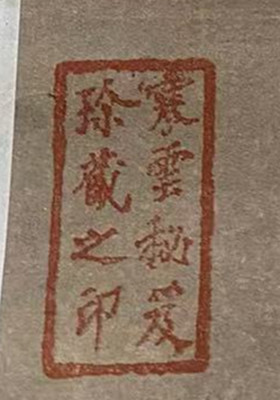 震雲秘笈
珍藏之印